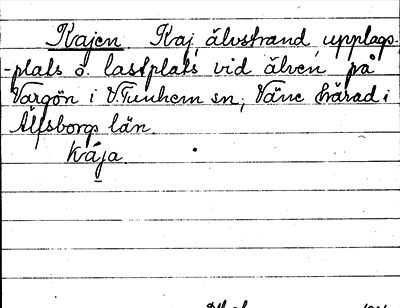 Kajen. Kaj, älvstrand, upplags-
-plats o. lastplats vid älven, på
Vargön i V.Tunhem sn; Väne härad i
Älfsborgs län.
Kája.